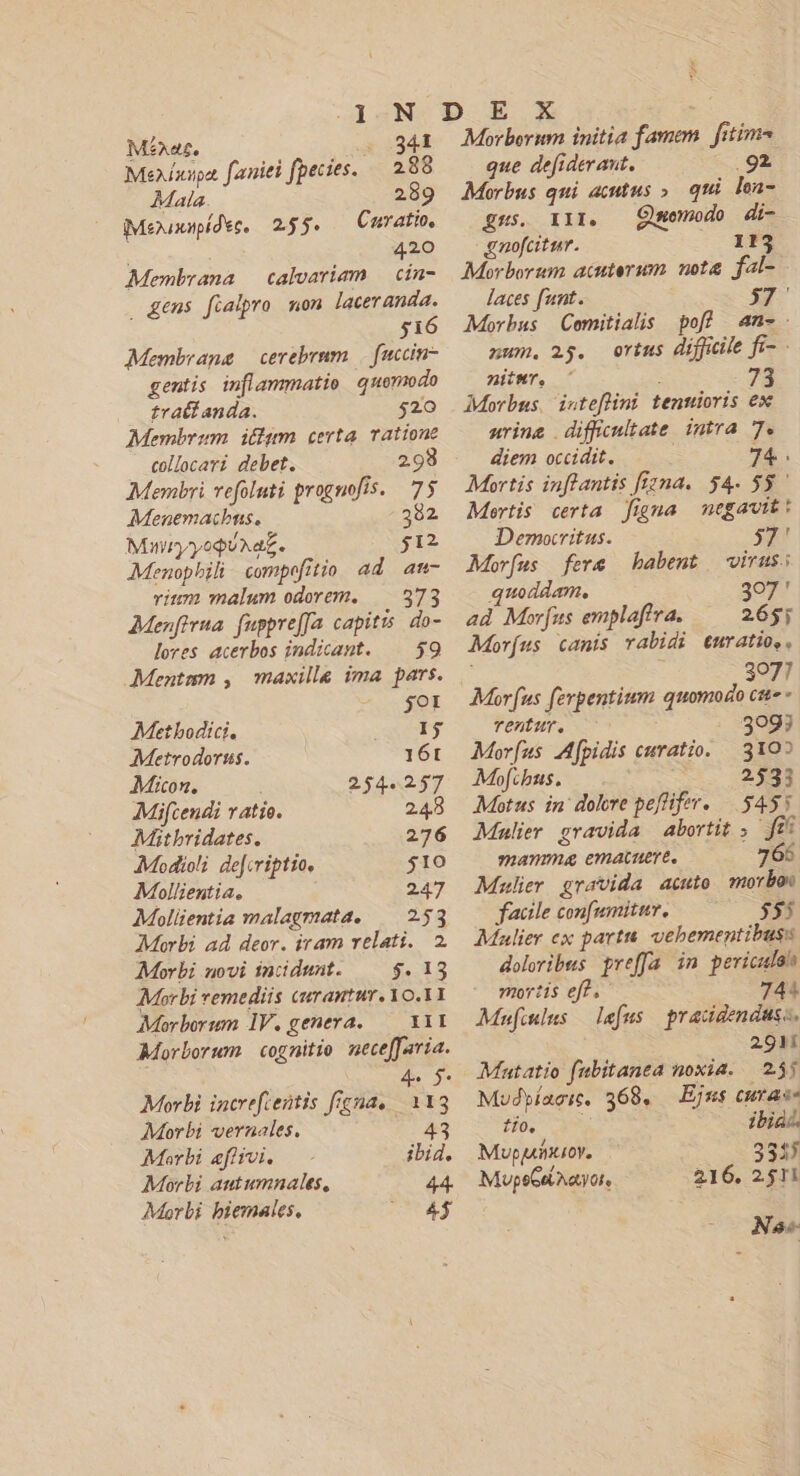 INDEX
Μέλας. 341
Μελίκηρα ſaniei ſpecies. 288
Mala 289
Μελικηρίδες. 255. Curatio.
420
Membrana calvariam cin-
gens ſcalpro non laceranda.
516
Membranæ cerebrum ſuccin-
gentis inflammatio quomodo
tractanda. 520
Membrum ictum certa ratione
collocari debet. 298
Membri reſoluti prognoſis. 75
Menemachus. 382
Μηνιγγοφύλαξ. 512
Menophili compoſitio ad au-
rium malum odorem. 373
Menſtrua ſuppreſſa capitis do-
lores acerbos indicant. 59
Mentum , maxillæ ima pars.
501
Methodici. 15
Metrodorus. 161
Micon. 254. 257
Miſcendi ratio. 248
Mithridates. 276
Modioli deſcriptio. 510
Mollientia. 247
Mollientia malagmata. 253
Morbi ad deor. iram relati. 2
Morbi novi incidunt. 5. 13
Morbi remediis curantur. 10. 11
Morborum IV. genera. 111
Morborum cognitio neceſſaria.
4. 5.
Morbi increſcentis ſigna. 113
Morbi vernales. 43
Morbi æſtivi. ibid.
Morbi autumnales. 44
Morbi hiemales. 45
Morborum initia famem ſitim-
que deſiderant. 92
Morbus qui acutus , qui lon-
gus. 111. Quomodo di-
gnoſcitur. 113
Morborum acutorum notæ fal-
laces ſunt. 57
Morbus Comitialis poſt an-
num. 25. ortus difficile fi-
nitur. 73
Morbus inteſtini tenuioris ex
urinæ difficultate intra 7.
diem occidit. 74
Mortis inſtantis ſigna. 54. 55
Mortis certa ſigna negavit
Democritus. 57
Morſus fere habent virus
quoddam. 307
ad Morſus emplaſtra. 265
Morſus canis rabidi curatio.
307
Morſus ſerpentium quomodo cu-
rentur. 309
Morſus Aſpidis curatio. 310
Moſchus. 253
Motus in dolore peſtifer. 545
Mulier gravida abortit , ſi
mammæ emacuere. 76
Mulier gravida acuto morbo
facile conſumitur. 55
Mulier ex partu vehementibus
doloribus preſſa in periculo
mortis eſt. 74
Muſculus læſus præcidendus.
291
Mutatio ſubitanea noxia. 25
Μυδρίασις. 368. Ejus cura-
tio. ibid.
Μυρμήκιον. 333
Μυροβάλανοι. 216. 251
Nas-